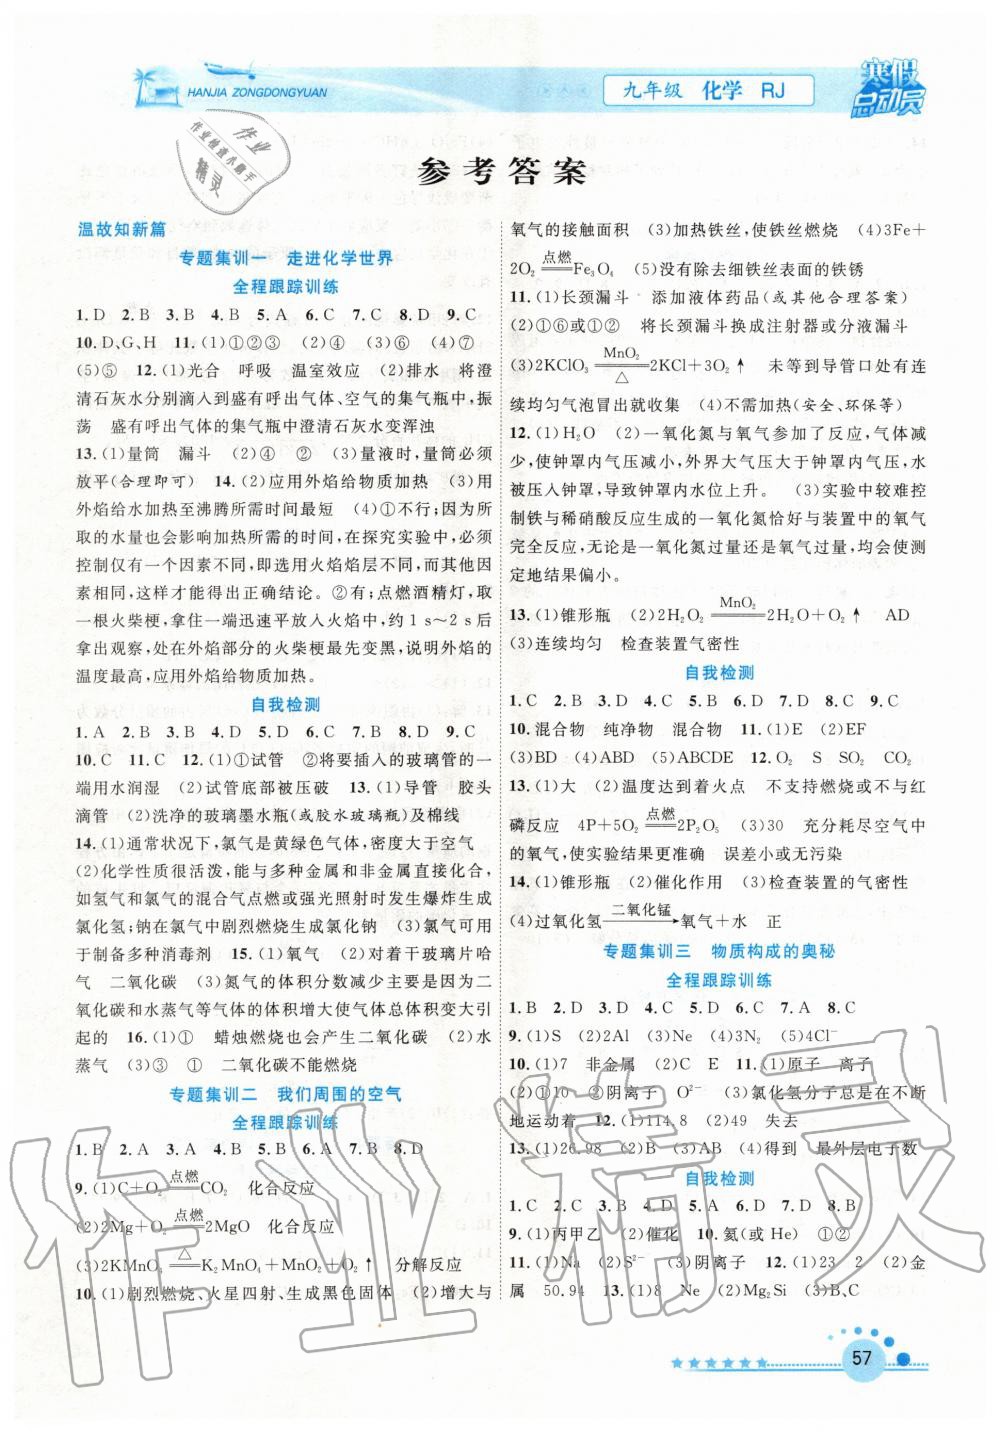 HANJIA ZONGDONGYUAN
九年级 化学 RJ
寒假总动员
作业
作业检查小助手
精灵
参考答案
温故知新篇
专题集训一 走进化学世界
全程跟踪训练
1.D 2.B 3.B 4.B 5.A 6.C 7.C 8.D 9.C
10.D、G、H 11.(1)①②③ (2)④ (3)⑥ (4)⑦
(5)⑤ 12.(1)光合 呼吸 温室效应 (2)排水 将澄
清石灰水分别滴入到盛有呼出气体、空气的集气瓶中,振
荡 盛有呼出气体的集气瓶中澄清石灰水变浑浊
13.(1)量筒 漏斗 (2)④ ② (3)量液时,量筒必须
放平(合理即可) 14.(2)应用外焰给物质加热 (3)用
外焰给水加热至沸腾所需时间最短 (4)①不行;因为所
取的水量也会影响加热所需的时间,在探究实验中,必须
控制仅有一个因素不同,即选用火焰焰层不同,而其他因
素相同,这样才能得出正确结论。②有;点燃酒精灯,取
一根火柴梗,拿住一端迅速平放入火焰中,约1 s~2 s后
拿出观察,处在外焰部分的火柴梗最先变黑,说明外焰的
温度最高,应用外焰给物质加热。
自我检测
1.A 2.B 3.D 4.D 5.D 6.C 7.D 8.B 9.D
10.C 11.C 12.(1)①试管 ②将要插入的玻璃管的一
端用水润湿 (2)试管底部被压破 13.(1)导管 胶头
滴管 (2)洗净的玻璃墨水瓶(或胶水玻璃瓶)及棉线
14.(1)通常状况下,氯气是黄绿色气体,密度大于空气
(2)化学性质很活泼,能与多种金属和非金属直接化合,
如氢气和氯气的混合气点燃或强光照射时发生爆炸生成
氯化氢;钠在氯气中剧烈燃烧生成氯化钠 (3)氯气可用
于制备多种消毒剂 15.(1)氧气 (2)对着干玻璃片哈
气 二氧化碳 (3)氮气的体积分数减少主要是因为二
氧化碳和水蒸气等气体的体积增大使气体总体积变大引
起的 16.(1)① 蜡烛燃烧也会产生二氧化碳 (2)水
蒸气 (3)③ ① 二氧化碳不能燃烧
专题集训二 我们周围的空气
全程跟踪训练
1.B 2.A 3.A 4.D 5.D 6.A 7.B 8.D
9.(1)C+O₂ 点燃 CO₂ 化合反应
(2)2Mg+O₂ 点燃 2MgO 化合反应
(3)2KMnO₄ △ K₂MnO₄+MnO₂+O₂↑ 分解反应
10.(1)剧烈燃烧、火星四射、生成黑色固体 (2)增大与
氧气的接触面积 (3)加热铁丝,使铁丝燃烧 (4)3Fe+
2O₂ 点燃 Fe₃O₄ (5)没有除去细铁丝表面的铁锈
11.(1)长颈漏斗 添加液体药品(或其他合理答案)
(2)①⑥或①② 将长颈漏斗换成注射器或分液漏斗
(3)2KClO₃ MnO₂ △ 2KCl+3O₂↑ 未等到导管口处有连
续均匀气泡冒出就收集 (4)不需加热(安全、环保等)
12.(1)H₂O (2)一氧化氮与氧气参加了反应,气体减
少,使钟罩内气压减小,外界大气压大于钟罩内气压,水
被压入钟罩,导致钟罩内水位上升。 (3)实验中较难控
制铁与稀硝酸反应生成的一氧化氮恰好与装置中的氧气
完全反应,无论是一氧化氮过量还是氧气过量,均会使测
定地结果偏小。
13.(1)锥形瓶 (2)2H₂O₂ MnO₂ 2H₂O+O₂↑ AD
(3)连续均匀 检查装置气密性
自我检测
1.C 2.B 3.D 4.C 5.B 6.D 7.D 8.C 9.C
10.混合物 纯净物 混合物 11.(1)E (2)EF
(3)BD (4)ABD (5)ABCDE 12.O₂ S SO₂ CO₂
13.(1)大 (2)温度达到着火点 不支持燃烧或不与红
磷反应 4P+5O₂ 点燃 2P₂O₅ (3)30 充分耗尽空气中
的氧气,使实验结果更准确 误差小或无污染
14.(1)锥形瓶 (2)催化作用 (3)检查装置的气密性
(4)过氧化氢 二氧化锰 氧气+水 正
专题集训三 物质构成的奥秘
全程跟踪训练
1.B 2.D 3.D 4.B 5.D 6.C 7.A 8.C
9.(1)S (2)2Al (3)Ne (4)3N₂ (5)4Cl⁻
10.(1)7 非金属 (2)C E 11.(1)原子 离子
(2)①10 ②阴离子 O²⁻ (3)氯化氢分子总是在不断
地运动着 12.(1)114.8 (2)49 失去
13.(1)26.98 (2)B (3)AB (4)得到 最外层电子数
自我检测
1.C 2.C 3.B 4.C 5.A 6.D 7.D 8.B
9.(1)丙甲乙 (2)催化 10.氦(或 He) ①②
11.(1)Na (2)S²⁻ (3)阴离子 12.(1)23 2 (2)金
属 50.94 13.(1)8 Ne (2)Mg₂Si (3)B、C
57
作业精灵